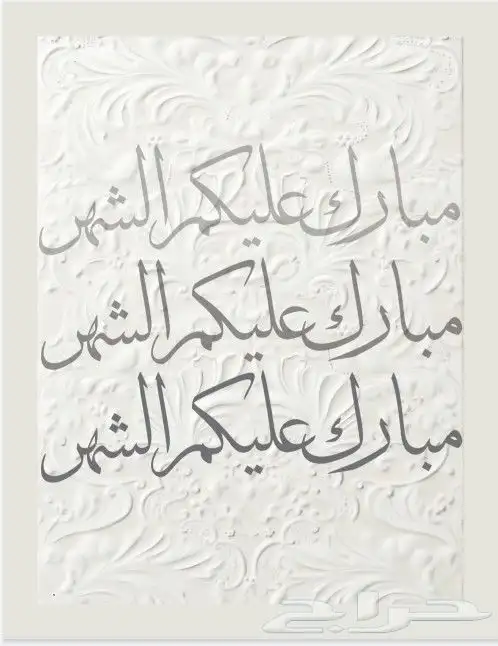 مبارك عليكم الشهر
مبارك عليكم الشهر
مبارك عليكم الشهر
حراج